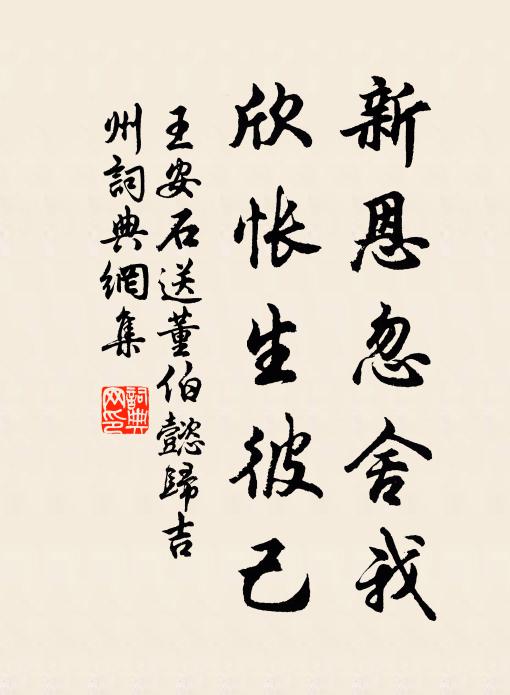 新恩忽舍我
欣怅生彼己
王安石送董伯懿歸吉
州詞典網集
詞典
网印